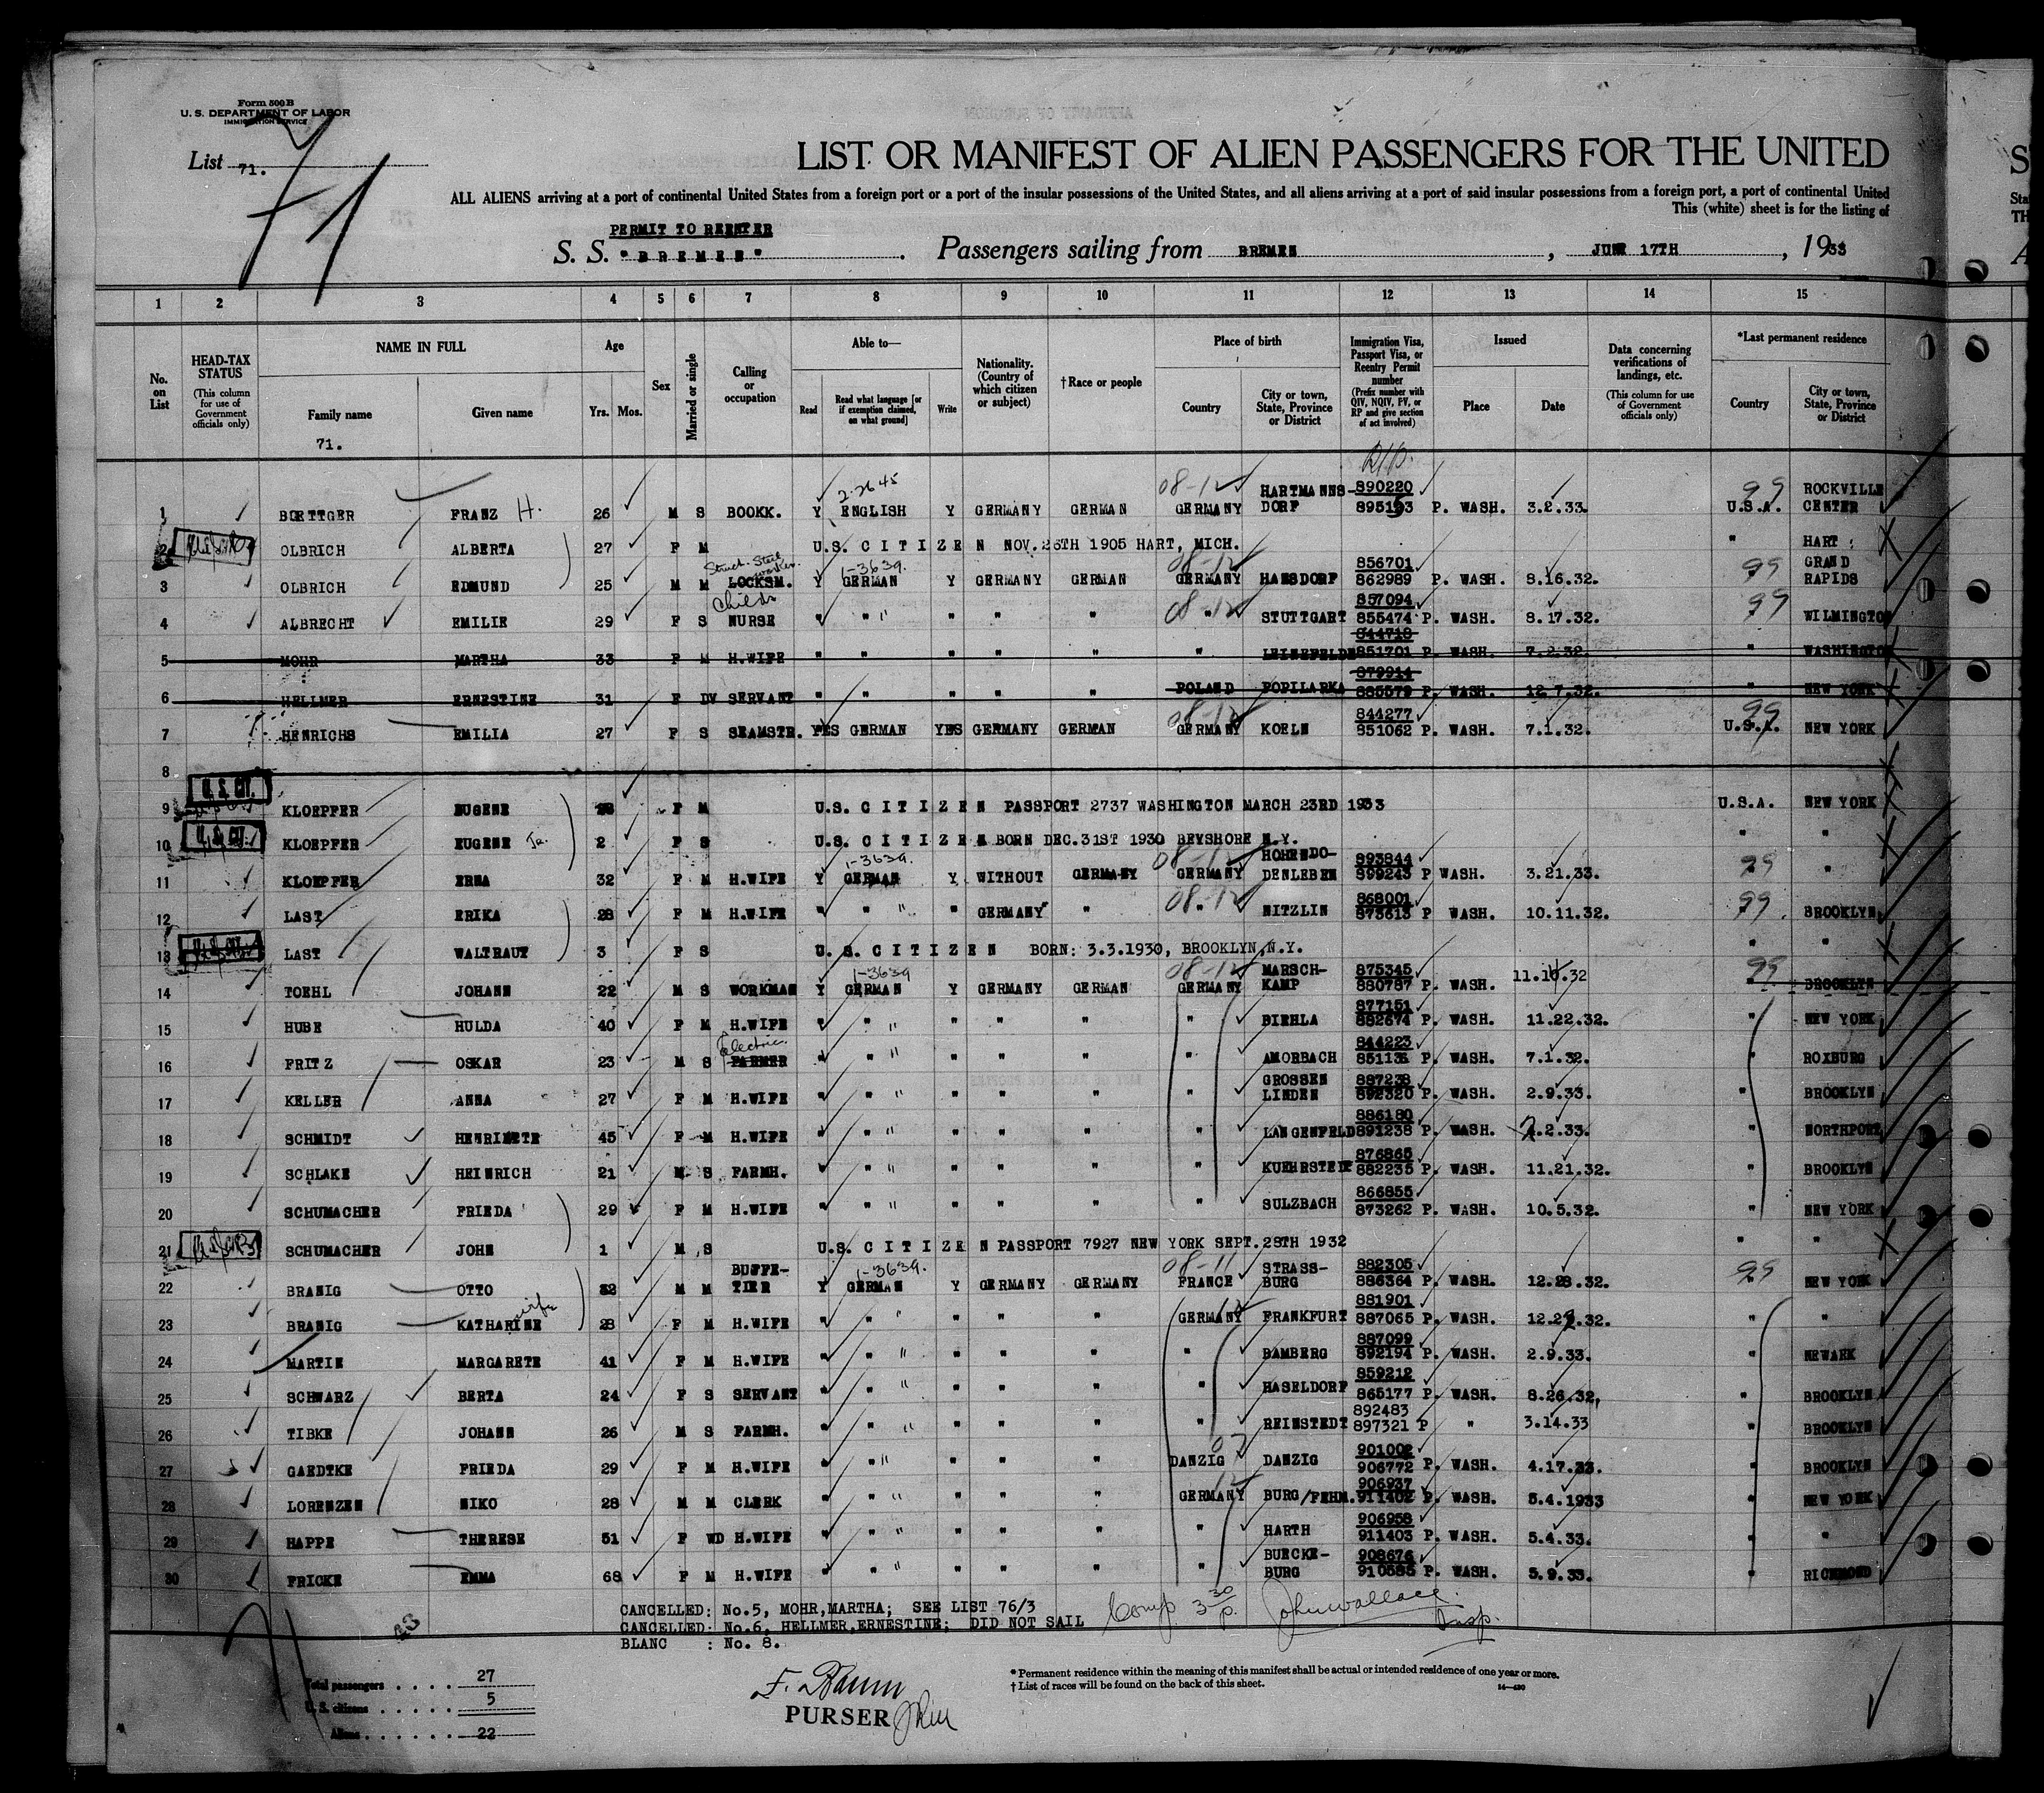 Form 500 B
U. S. DEPARTMENT OF LABOR
IMMIGRATION SERVICE
List 71.
71
LIST OR MANIFEST OF ALIEN PASSENGERS FOR THE UNITED
ALL ALIENS arriving at a port of continental United States from a foreign port or a port of the insular possessions of the United States, and all aliens arriving at a port of said insular possessions from a foreign port, a port of continental United
This (white) sheet is for the listing of
PERMIT TO REENTER
S. S. "BREMEN". Passengers sailing from BREMEN, JUNE 17TH, 1933
1 2 3 4 5 6 7 8 9 10 11 12 13 14 15
No. on List
HEAD-TAX STATUS (This column for use of Government officials only)
NAME IN FULL Family name Given name
Age Yrs. Mos.
Sex
Married or single
Calling or occupation
Able to— Read Read what language [or if exemption claimed, on what ground] Write
Nationality. (Country of which citizen or subject)
†Race or people
Place of birth Country City or town, State, Province or District
Immigration Visa, Passport Visa, or Reentry Permit number (Prefix number with QIV, NQIV, PV, or RP and give section of act involved)
Issued Place Date
Data concerning verifications of landings, etc. (This column for use of Government officials only)
*Last permanent residence Country City or town, State, Province or District
71.
1 BOETTGER FRANZ H. 26 M S BOOKK. Y ENGLISH Y GERMANY GERMAN 08-12 GERMANY HARTMANNS-DORF 890220 895193 P. WASH. 3.2.33. 99 U.S.A. ROCKVILLE CENTER
2 OLBRICH ALBERTA 27 F M U.S. CITIZEN NOV.26TH 1905 HART, MICH. " HART
3 OLBRICH EDMUND 25 M M LOCKSM. Y 1-3639. GERMAN Y GERMANY GERMAN 08-12 GERMANY HAESDORF 856701 862989 P. WASH. 8.16.32. 99 GRAND RAPIDS
4 ALBRECHT EMILIE 29 F S NURSE " " " " " " 08-12 " STUTTGART 857094 855474 P. WASH. 8.17.32. 99 WILMINGTON
5 MOHR MARTHA 33 F M H.WIFE " " " " " " LEINEFELDE 844718 851701 P. WASH. 7.2.32. " WASHINGTON
6 HELLMER ERNESTINE 31 F DV SERVANT " " " " " POLAND POPILARKA 879914 885579 P. WASH. 12.7.32. " NEW YORK
7 HENRICHS EMILIA 27 F S SEAMSTR. YES GERMAN YES GERMANY GERMAN 08-12 GERMANY KOELN 844277 851062 P. WASH. 7.1.32. 99 U.S.A. NEW YORK
8
U. S. CIT.
9 KLOEPFER EUGENE F M U.S. CITIZEN PASSPORT 2737 WASHINGTON MARCH 23RD 1933 U.S.A. NEW YORK
U. S. CIT.
10 KLOEPFER EUGENE Jr. 2 F S U.S. CITIZEN BORN DEC.31ST 1930 BEYSHORE N.Y. " "
11 KLOEPFER ERNA 32 F M H.WIFE Y 1-3639. GERMAN Y WITHOUT GERMANY 08-12 GERMANY HOHENDO-DENLEBEN 893844 899243 P WASH. 3.21.33. 99 "
12 LAST ERIKA 28 F M H.WIFE " " " " GERMANY " 08-12 " NITZLIN 868001 873613 P WASH. 10.11.32. 99 BROOKLYN
13 LAST WALTRAUT 3 F S U.S. CITIZEN BORN: 3.3.1930, BROOKLYN,N.Y. " "
14 TOEHL JOHANN 22 M S WORKMAN Y 1-3639 GERMAN Y GERMANY GERMAN 08-12 GERMANY MARSCH-KAMP 875345 880787 P. WASH. 11.16.32 99 BROOKLYN
15 HUBE HULDA 40 F M H.WIFE " " " " " " " BIEHLA 877151 882674 P. WASH. 11.22.32. " NEW YORK
16 FRITZ OSKAR 23 M S Electric. FARMER " " " " " " " AMORBACH 844223 P. WASH. 7.1.32. " ROXBURG
17 KELLER ANNA 27 F M H.WIFE " " " " " " " GROSSEN LINDEN 887238 892320 P. WASH. 2.9.33. " BROOKLYN
18 SCHMIDT HENRIETTE 45 F M H.WIFE " " " " " " " LANGENFELD 886180 891238 P. WASH. 2.2.33. " NORTHPORT
19 SCHLAKE HEINRICH 21 M S FARMH. " " " " " " " KUEHRSTEDT 876865 882235 P. WASH. 11.21.32. " BROOKLYN
20 SCHUMACHER FRIEDA 29 F M H.WIFE " " " " " " " SULZBACH 866855 873262 P. WASH. 10.5.32. " NEW YORK
21 SCHUMACHER JOHN 1 M S U.S. CITIZEN PASSPORT 7927 NEW YORK SEPT.28TH 1932 " "
22 BRANIG OTTO 32 M M BUFFE-TIER Y 1-3639. GERMAN Y GERMANY GERMANY 08-11 FRANCE STRASS-BURG 882305 886364 P. WASH. 12.28.32. 99 NEW YORK
23 BRANIG KATHARINE wife 28 F M H.WIFE " " " " " " GERMANY FRANKFURT 881901 887065 P. WASH. 12.29.32. " "
24 MARTIN MARGARETE 41 F M H.WIFE " " " " " " " BAMBERG 887099 892194 P. WASH. 2.9.33. " NEWARK
25 SCHWARZ BERTA 24 F S SERVANT " " " " " " " HASELDORF 859212 865177 P. WASH. 8.26.32, " BROOKLYN
26 TIBKE JOHANN 26 M S FARMH. " " " " " " " REINSTEDT 892483 897321 P " 3.14.33 " BROOKLYN
27 GAEDTKE FRIEDA 29 F M H.WIFE " " " " " " 07 DANZIG DANZIG 901002 906772 P. WASH. 4.17.33. " BROOKLYN
28 LORENZEN NIKO 28 M M CLERK " " " " " " 12 GERMANY BURG/FEHM. 906937 911402 P. WASH. 5.4.1933 " NEW YORK
29 HAPPE THERESE 51 F WD H.WIFE " " " " " " " HARTH 906958 911403 P. WASH. 5.4.33. " "
30 FRICKE EMMA 68 F M H.WIFE " " " " " " " BUECKE-BURG 908676 910585 P. WASH. 5.9.33. " RICHMOND
CANCELLED: No.5, MOHR,MARTHA; SEE LIST 76/3
CANCELLED: No.6, HELLMER,ERNESTINE; DID NOT SAIL
BLANC : No. 8.
Comp 3 30 p. John Wallace Insp.
Total passengers . . . . . 27
U. S. citizens . . . . . 5
Aliens . . . . . . 22
F. Baum
PURSER
*Permanent residence within the meaning of this manifest shall be actual or intended residence of one year or more.
†List of races will be found on the back of this sheet.
14—430